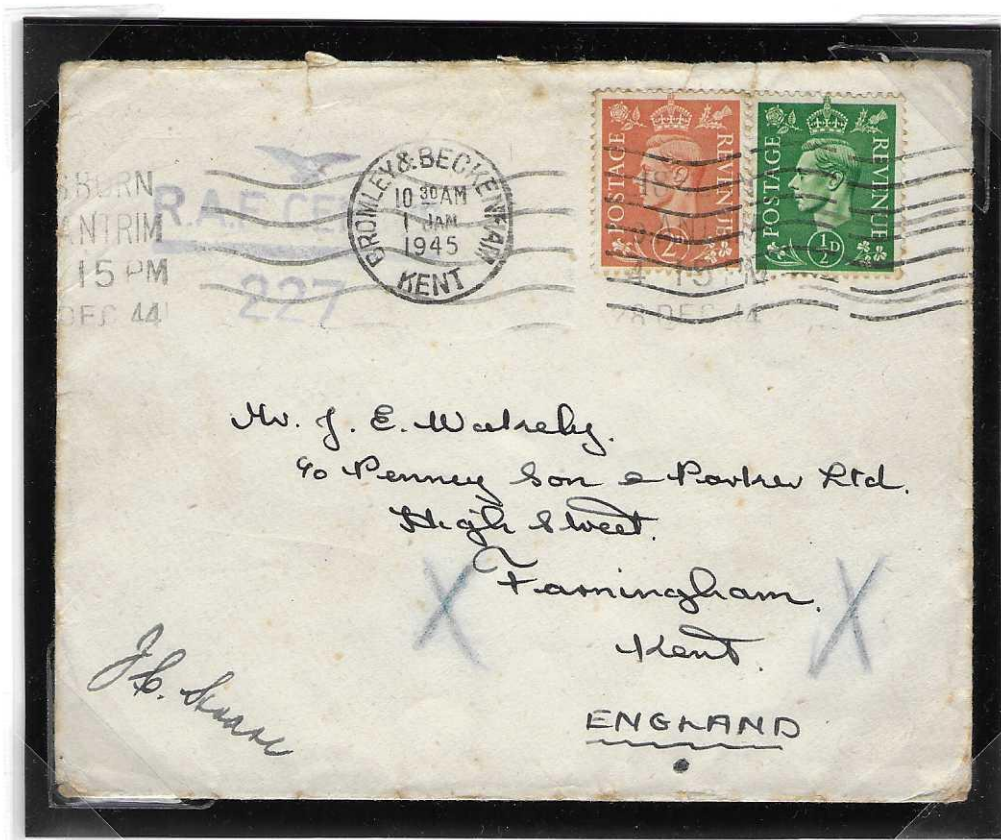 SBURN
ANTRIM
15 PM
DEC 44
R.A.F. CEN
227
BROMLEY & BECKENHAM
10 30 AM
1 JAN
1945
KENT
POSTAGE REVENUE
2D
POSTAGE REVENUE
½D
15 PM
28 DEC 44
Mr. J. E.
c/o Penney Son & Parker Ltd.
High Street.
Farningham.
Kent.
ENGLAND
X X
J.